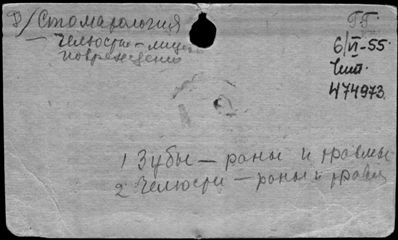 Ф/Стоматология
— Челюстно-лицев.
повреждения
ГБ
6/VI-55.
Чит.
474973.
1 Зубы — раны и травмы
2 Челюсти — раны и травм